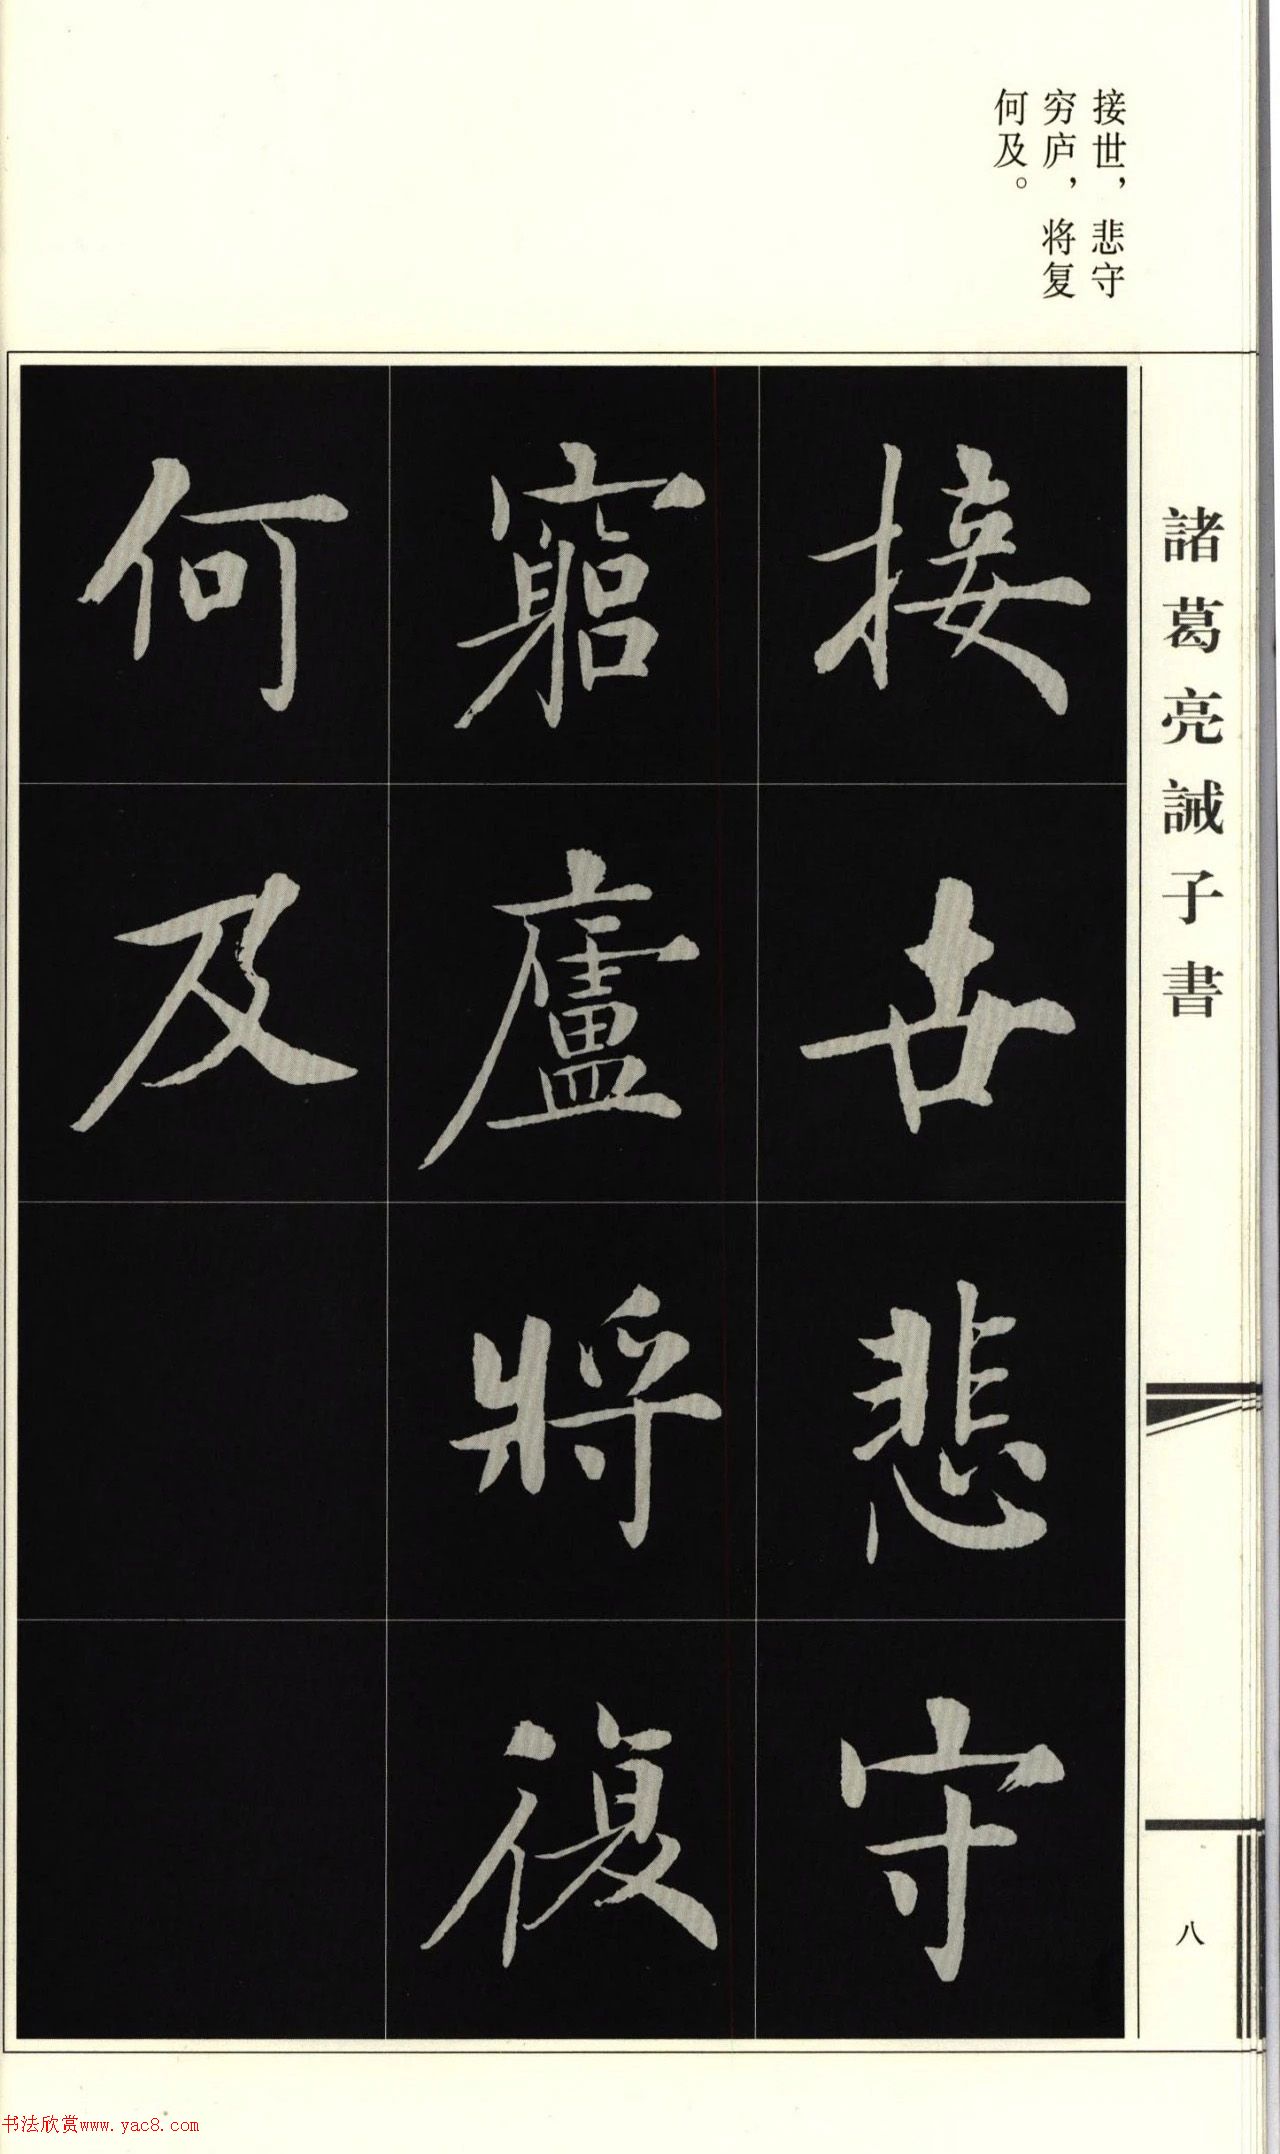 接世，悲守
穷庐，将复
何及。
諸葛亮誡子書
接世悲守
窮廬將復
何及
八
书法欣赏www.yac8.com